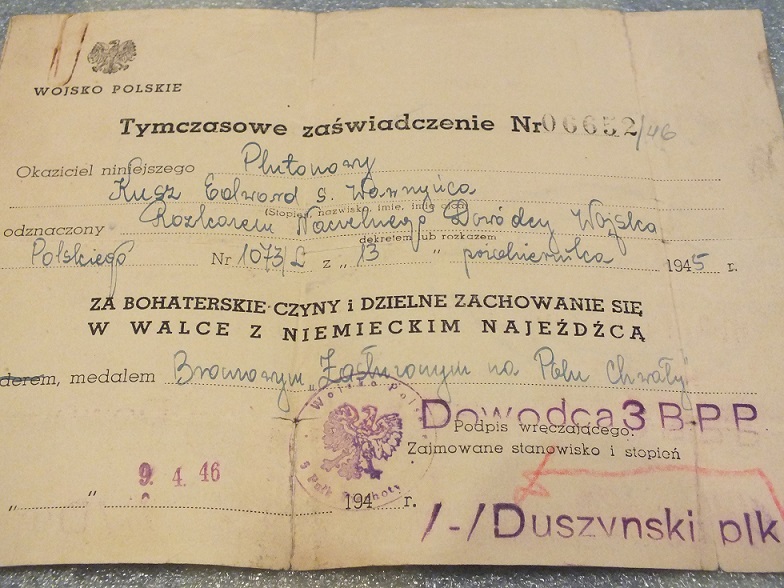 WOJSKO POLSKIE
Tymczasowe zaświadczenie Nr 06652/46
Okaziciel niniejszego Plutonowy
Kusz Edward s. Wawrzyńca
(Stopień, nazwisko, imię, imię ojca)
odznaczony Rozkazem Naczelnego Dowódcy Wojska
dekretem lub rozkazem
Polskiego Nr 1073/L z „ 13 " października 1945 r.
ZA BOHATERSKIE CZYNY i DZIELNE ZACHOWANIE SIĘ
W WALCE Z NIEMIECKIM NAJEŹDŹCĄ
derem, medalem Bronzowym „Zasłużonym na Polu Chwały"
Wojsko Pol
5 Pułk
Dowodca 3 B P P
Podpis wręczającego:
Zajmowane stanowisko i stopień
9. 4. 46
„ " 194 r.
/-/ Duszynski plk